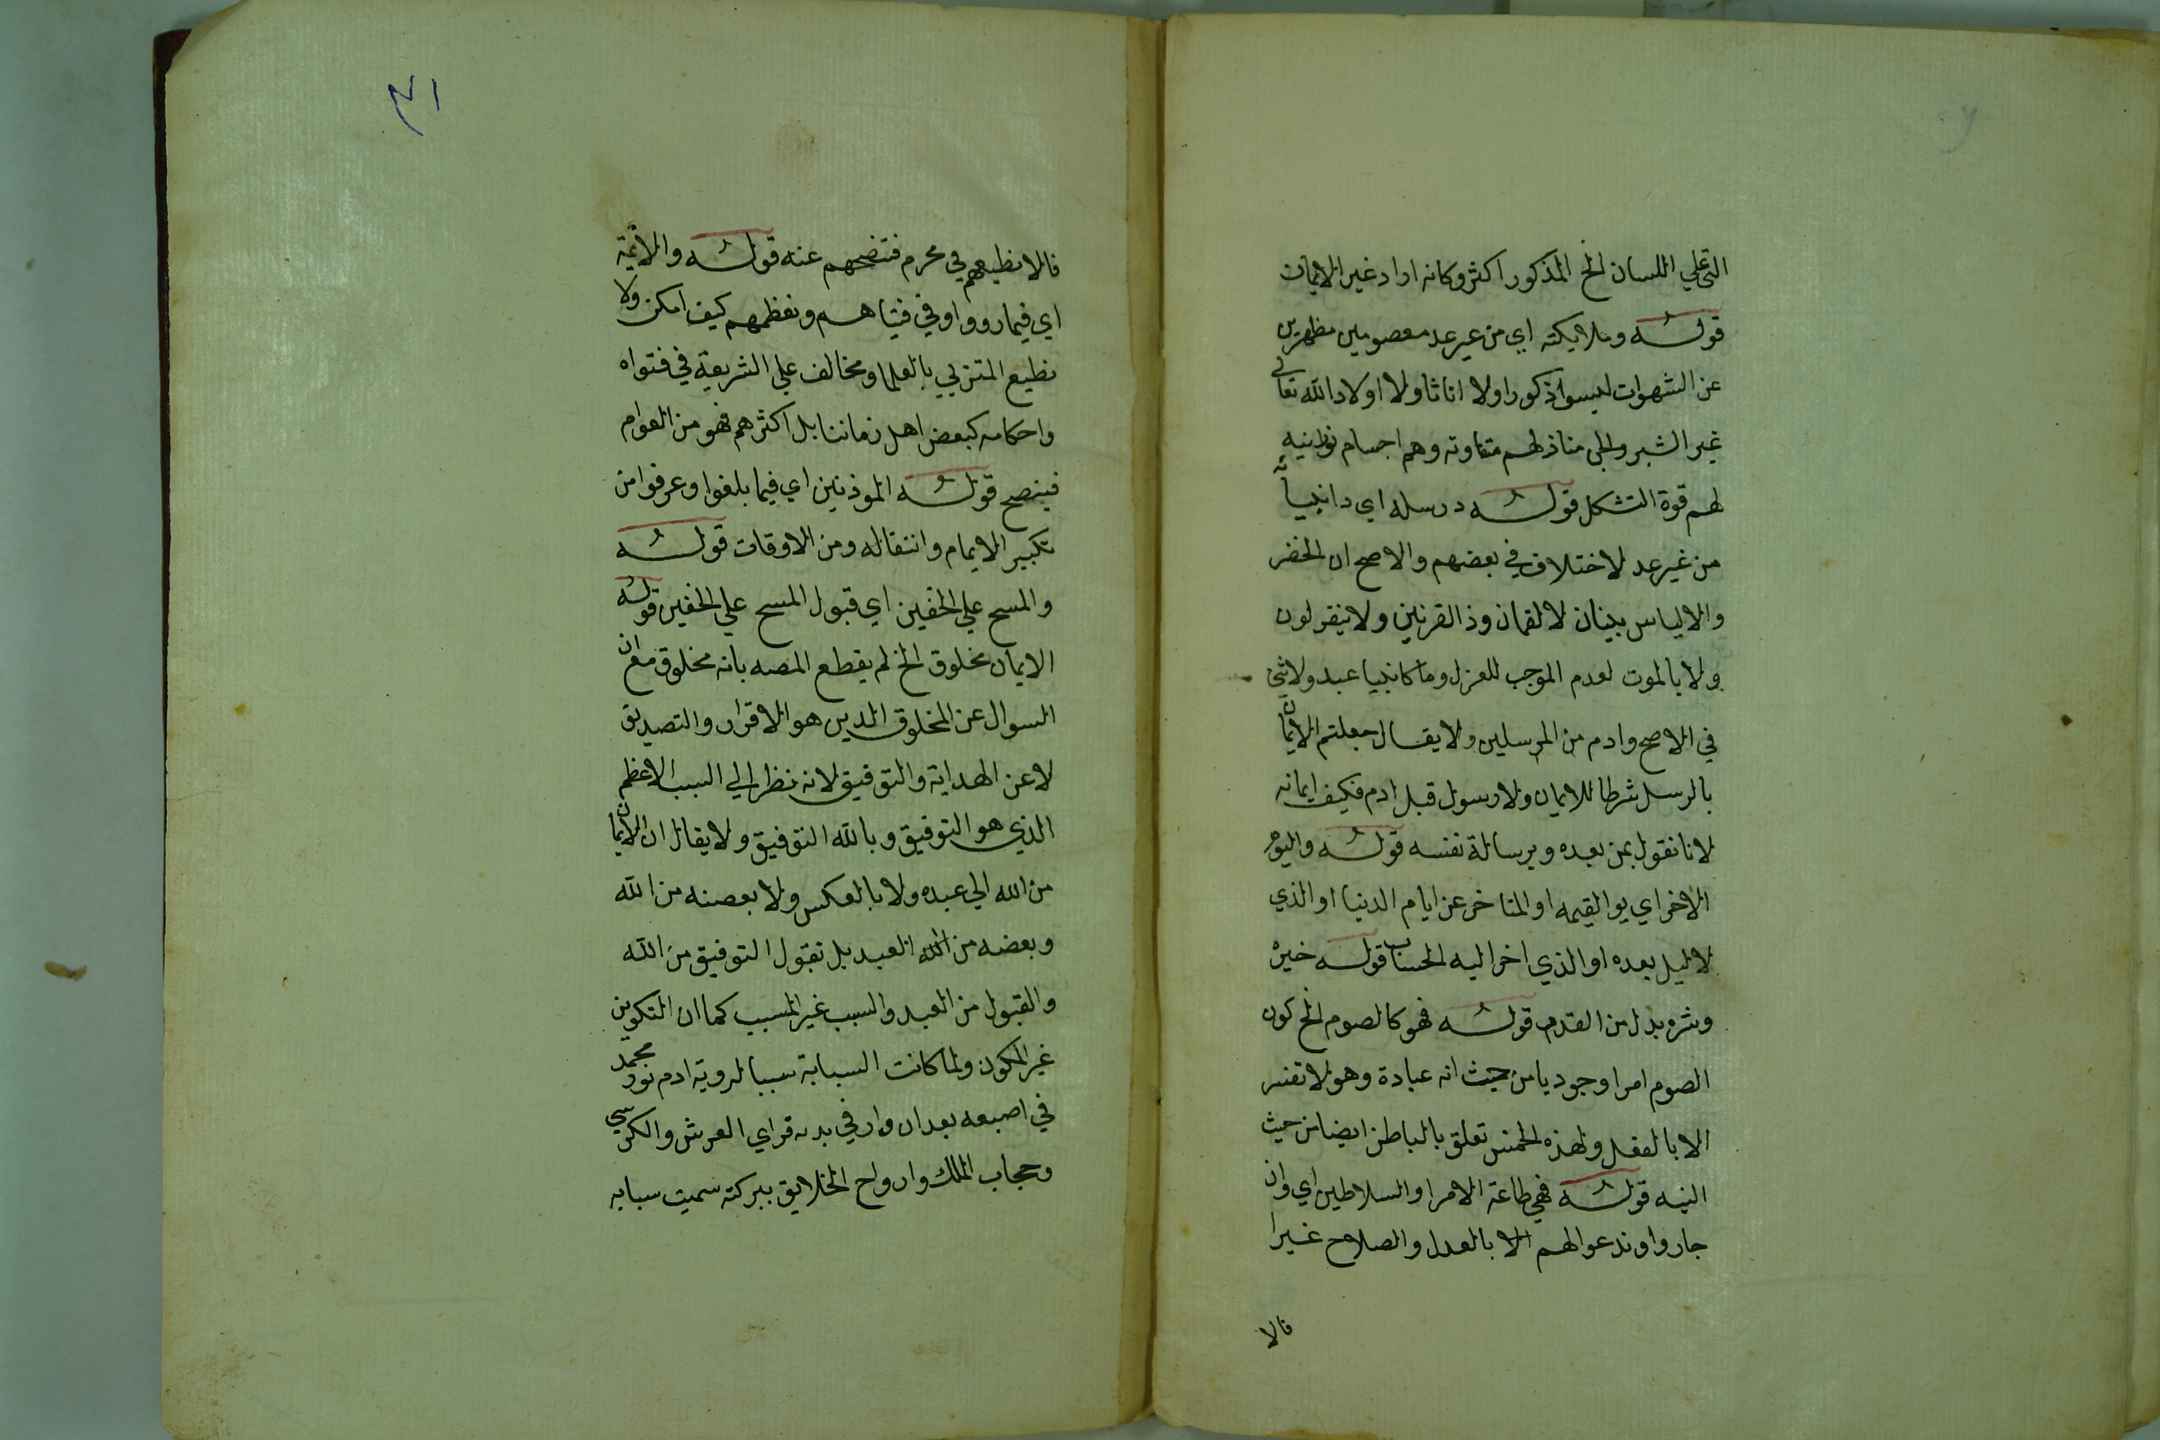 التي علي اللسان الخ المذكور اكثر وكانه اراد غير الايمان
قوله وملايكته اي من غير عد معصومين مطهرين
عن الشهوات ليسوا ذكورا ولا اناثا ولا اولاد الله تعالى
غير البشر والجن منازلهم متفاوته وهم اجسام نورانيه
لهم قوة التشكل قوله ورسله اي وانبيائه
من غير عد لاختلاف في بعضهم والاصح ان الخضر
والالياس نبيان لا لقمان وذ القرنين ولا ينقرلون
ولا بالموت لعدم الموجب للعزل وما كان نبيا عبد ولا انثى
في الاصح وادم من المرسلين ولا يقال جعلتم الايمان
بالرسل شرطا للايمان ولا رسول قبل ادم فكيف ايمانه
لانا نقول بمن بعده وبرسالة نفسه قوله واليوم
الاخر اي يوم القيمه او المتاخر عن ايام الدنيا او الذي
لا ليل بعده او الذي اخر اليه الحساب قوله خيره
وشره بدل من القدر قوله فهو كالصوم الخ كون
الصوم امرا وجوديا من حيث انه عبادة وهو لا تفسر
الا بالفعل ولهذه الخمس تعلق بالباطن ايضا من حيث
النيه قوله فهي طاعة الامرا والسلاطين اي وان
جاروا وندعوا لهم الا بالعدل والصلاح غير ا
فالا
٣١
فالا نطيعهم في محرم فننصحهم عنه قوله والائمة
اي فيما رووا وفي فتياهم ونعظمهم كيف امكن ولا
نطيع المتزيي بالعلما ومخالف علي الشريعة في فتواه
واحكامه كبعض اهل زماننا بل اكثرهم فهو من العوام
فينصح قوله الموذنين اي فيما بلغوا وعرفوا من
تكبير الايمام وانتقاله ومن الاوقات قوله
والمسح علي الخفين اي قبول المسح علي الخفين قوله
الايمان مخلوق الخ لم يقطع المصه بانه مخلوق مع ان
السوال عن المخلوق الذين هو الاقرار والتصديق
لا عن الهداية والتوفيق لانه نظر الي السبب الاعظم
الذي هو التوفيق وبالله التوفيق ولا يقال ان الايمان
من الله الي عبده ولا بالعكس ولا بعضه من الله
وبعضه من الله العبد بل نقول التوفيق من الله
والقبول من العبد والسبب غير المسبب كما ان التكوين
غير المكون ولما كانت السبابة سببا لروية ادم نور محمد
في اصبعه بعد ان دار في بدنه فراي العرش والكرسي
وحجاب الملك وارواح الخلايق ببركته سميت سبابه